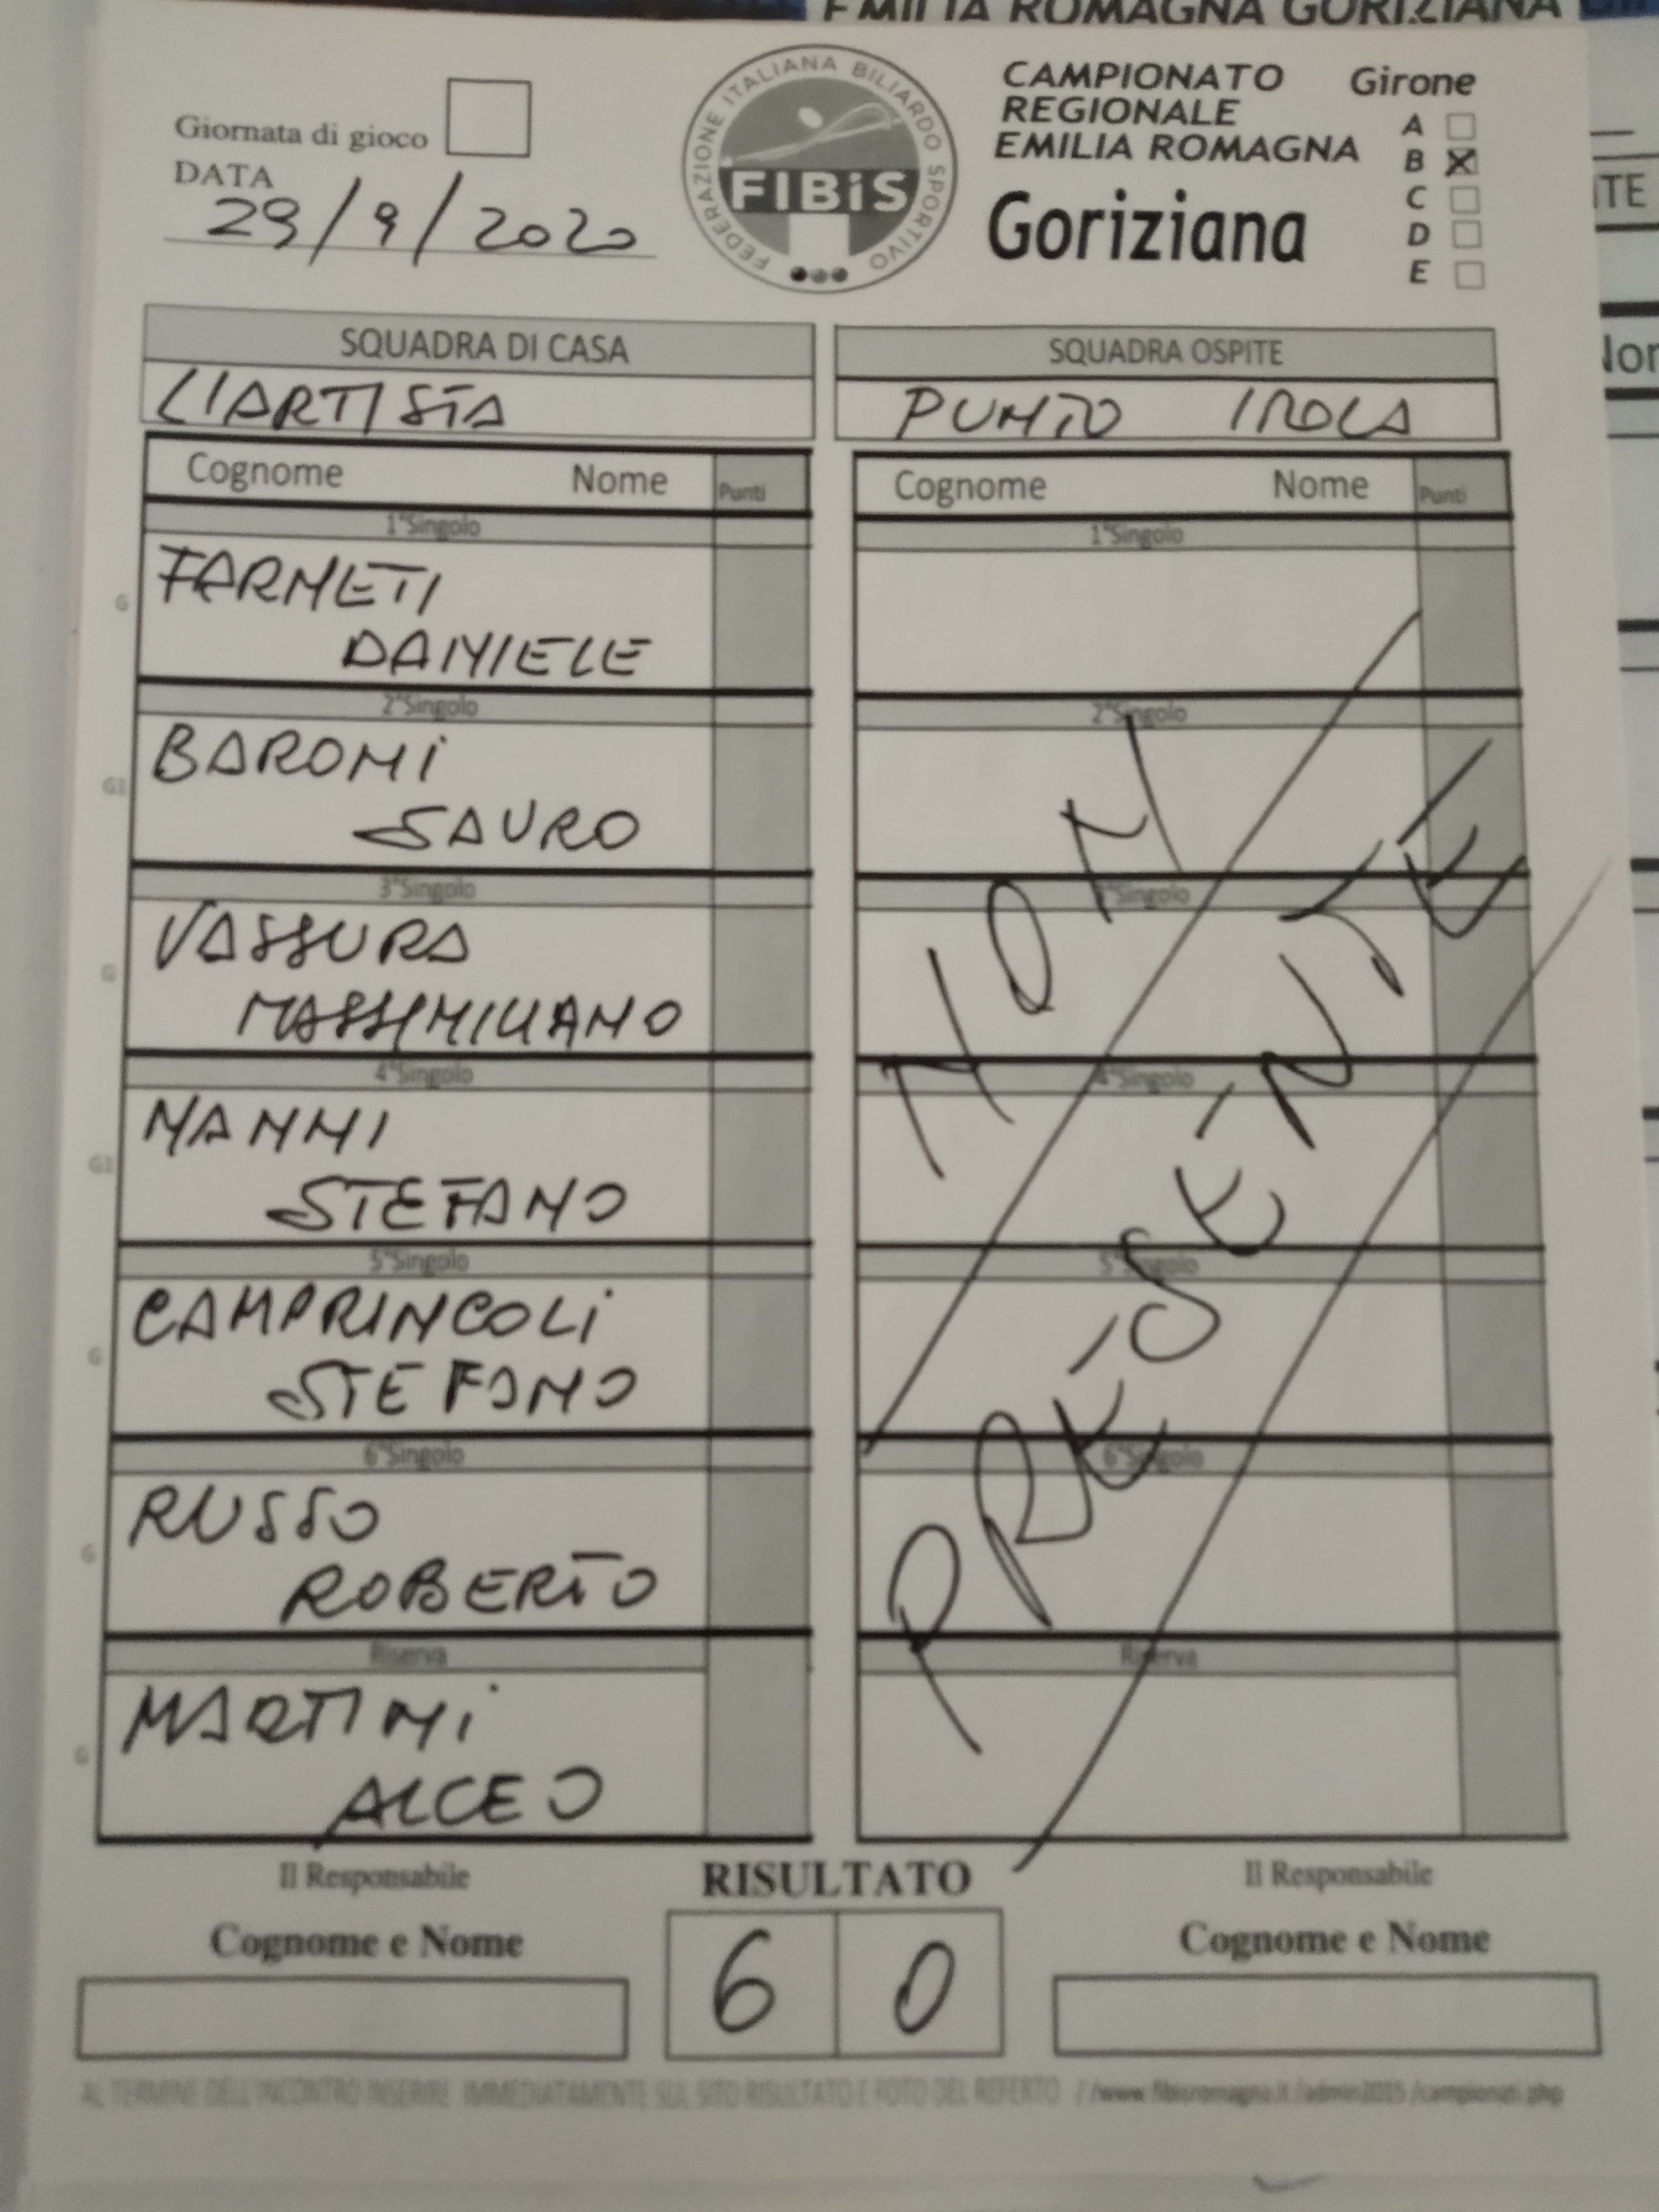 EMILIA ROMAGNA GORIZIANA
Giornata di gioco
DATA
29/9/2020
FEDERAZIONE ITALIANA BILIARDO SPORTIVO
FIBiS
CAMPIONATO
REGIONALE
EMILIA ROMAGNA
Goriziana
Girone
A
B X
C
D
E
SQUADRA DI CASA
L'ARTISTA
SQUADRA OSPITE
PUNTO IROLA
Cognome Nome Punti
1°Singolo
G
FARNETI
DANIELE
2°Singolo
G1
BARONI
SAURO
3°Singolo
G
VASSURA
MASSIMILIANO
4°Singolo
G1
NANNI
STEFANO
5°Singolo
G
CAMPRINCOLI
STEFANO
6°Singolo
G
RUSSO
ROBERTO
Riserva
G
MARTINI
ALCEO
Cognome Nome Punti
1°Singolo
2°Singolo
3°Singolo
4°Singolo
5°Singolo
6°Singolo
Riserva
NON
PRESENTE
Il Responsabile
Cognome e Nome
RISULTATO
6 0
Il Responsabile
Cognome e Nome
AL TERMINE DELL'INCONTRO INSERIRE IMMEDIATAMENTE SUL SITO RISULTATO E FOTO DEL REFERTO //www.fibisromagna.it/admin2015/campionati.php